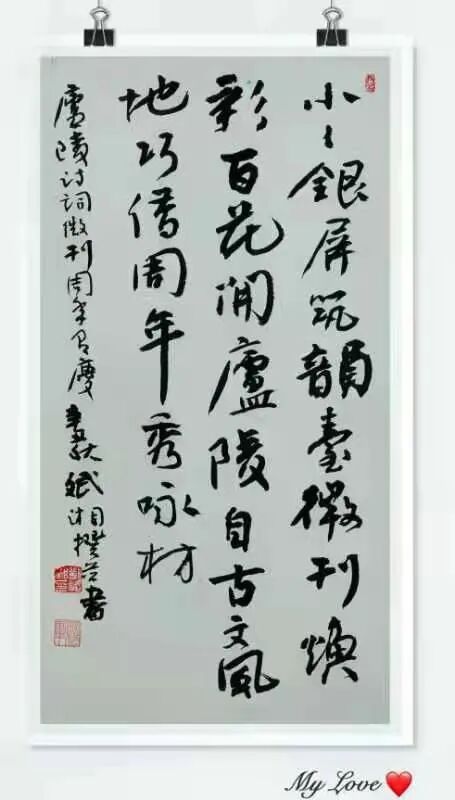 小々銀屏筑韻臺微刊煥
彩百花開廬陵自古文風
地巧借周年秀咏材
廬陵诗词微刊周年慶辛丑秋斌湘撰并書
My Love